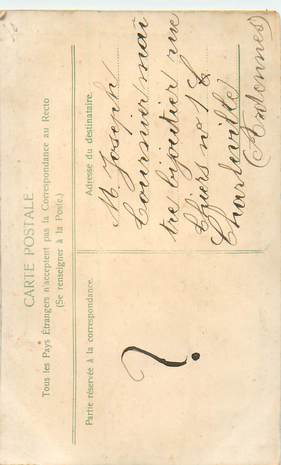 CARTE POSTALE
Tous les Pays Étrangers n'acceptent pas la Correspondance au Recto
(Se renseigner à la Poste.)
Partie réservée à la correspondance.
?
Adresse du destinataire.
M Joseph
Cournier maî
tre bijoutier rue
Thiers n° 16
Charleville
(Ardennes)